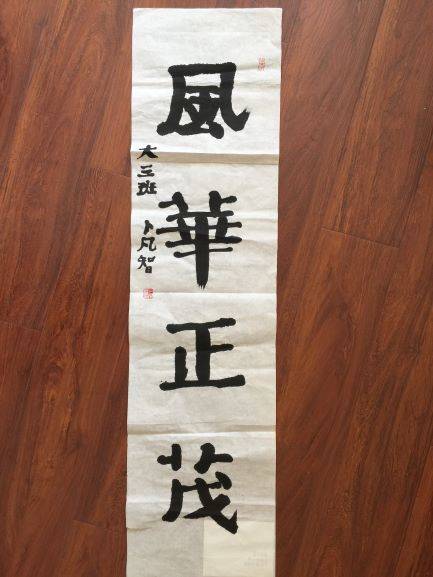 風華正茂
大三班 卜凡智